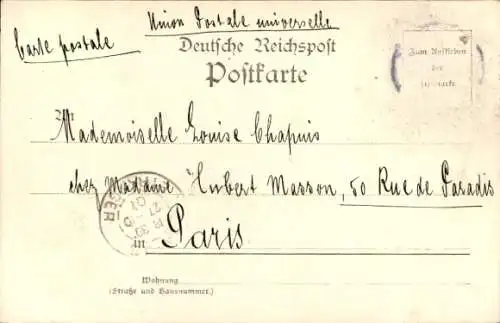 Union Postale universelle
Carte postale
Deutsche Reichspost
Postkarte
Zum Aufkleben
der
An
Mademoiselle Louise Chapuis
chez Madame Hubert Masson, 50 Rue de Paradis
in Paris
Wohnung
(Straße und Hausnummer.)